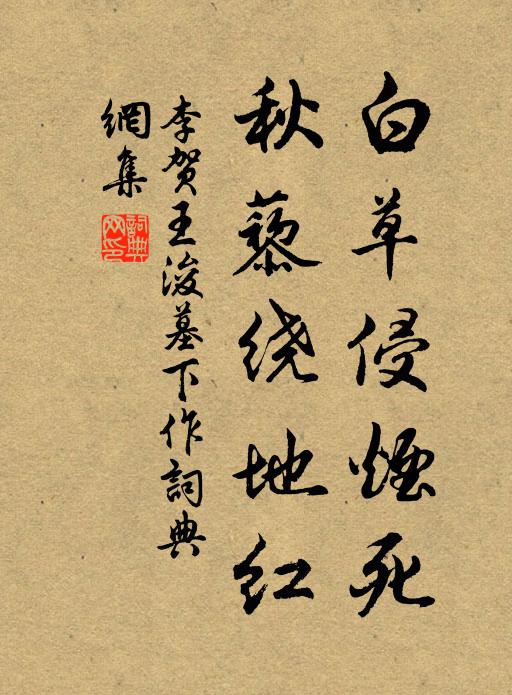 白草侵烟死
秋藜绕地红
李贺王浚墓下作词典
網集
詞典网印